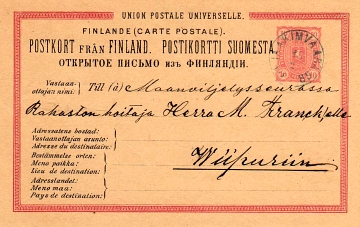 UNION POSTALE UNIVERSELLE.
FINLANDE (CARTE POSTALE).
POSTKORT FRÅN FINLAND. POSTIKORTTI SUOMESTA.
ОТКРЫТОЕ ПИСЬМО изъ ФИНЛЯНДІИ.
Vastaan-
ottajan nimi:
Till (à) Maanviljelysseurassa
Rahaston hoitaja Herra M. Franck'olle
Adressatens bostad:
Vastaanottajan asunto:
Adresse du destinataire:
Bestämmelse orten:
Meno paikka:
Lieu de destination:
Wiipuriin
Adresslandet:
Meno maa:
Pays de destination: